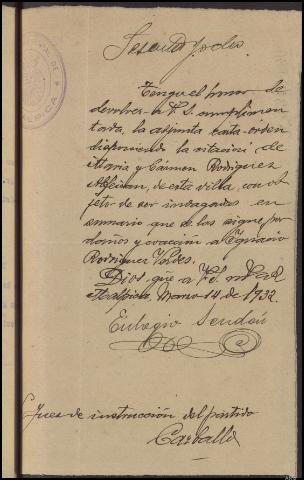 Tengo el honor de
devolver a V.S. cumplimen
tada, la adjunta carta-orden
disponiendo la citación de
María y Cármen Rodriguez
de esta villa, con ob
jeto de ser indagadas en
sumario que se las sigue por
daños y coacción a Ignacio
Rodriguez
Dios gûe a V.S. m
Malpica, Marzo 14 de 1932.
Eulogio
Juez de instrucción del partido
Carballo